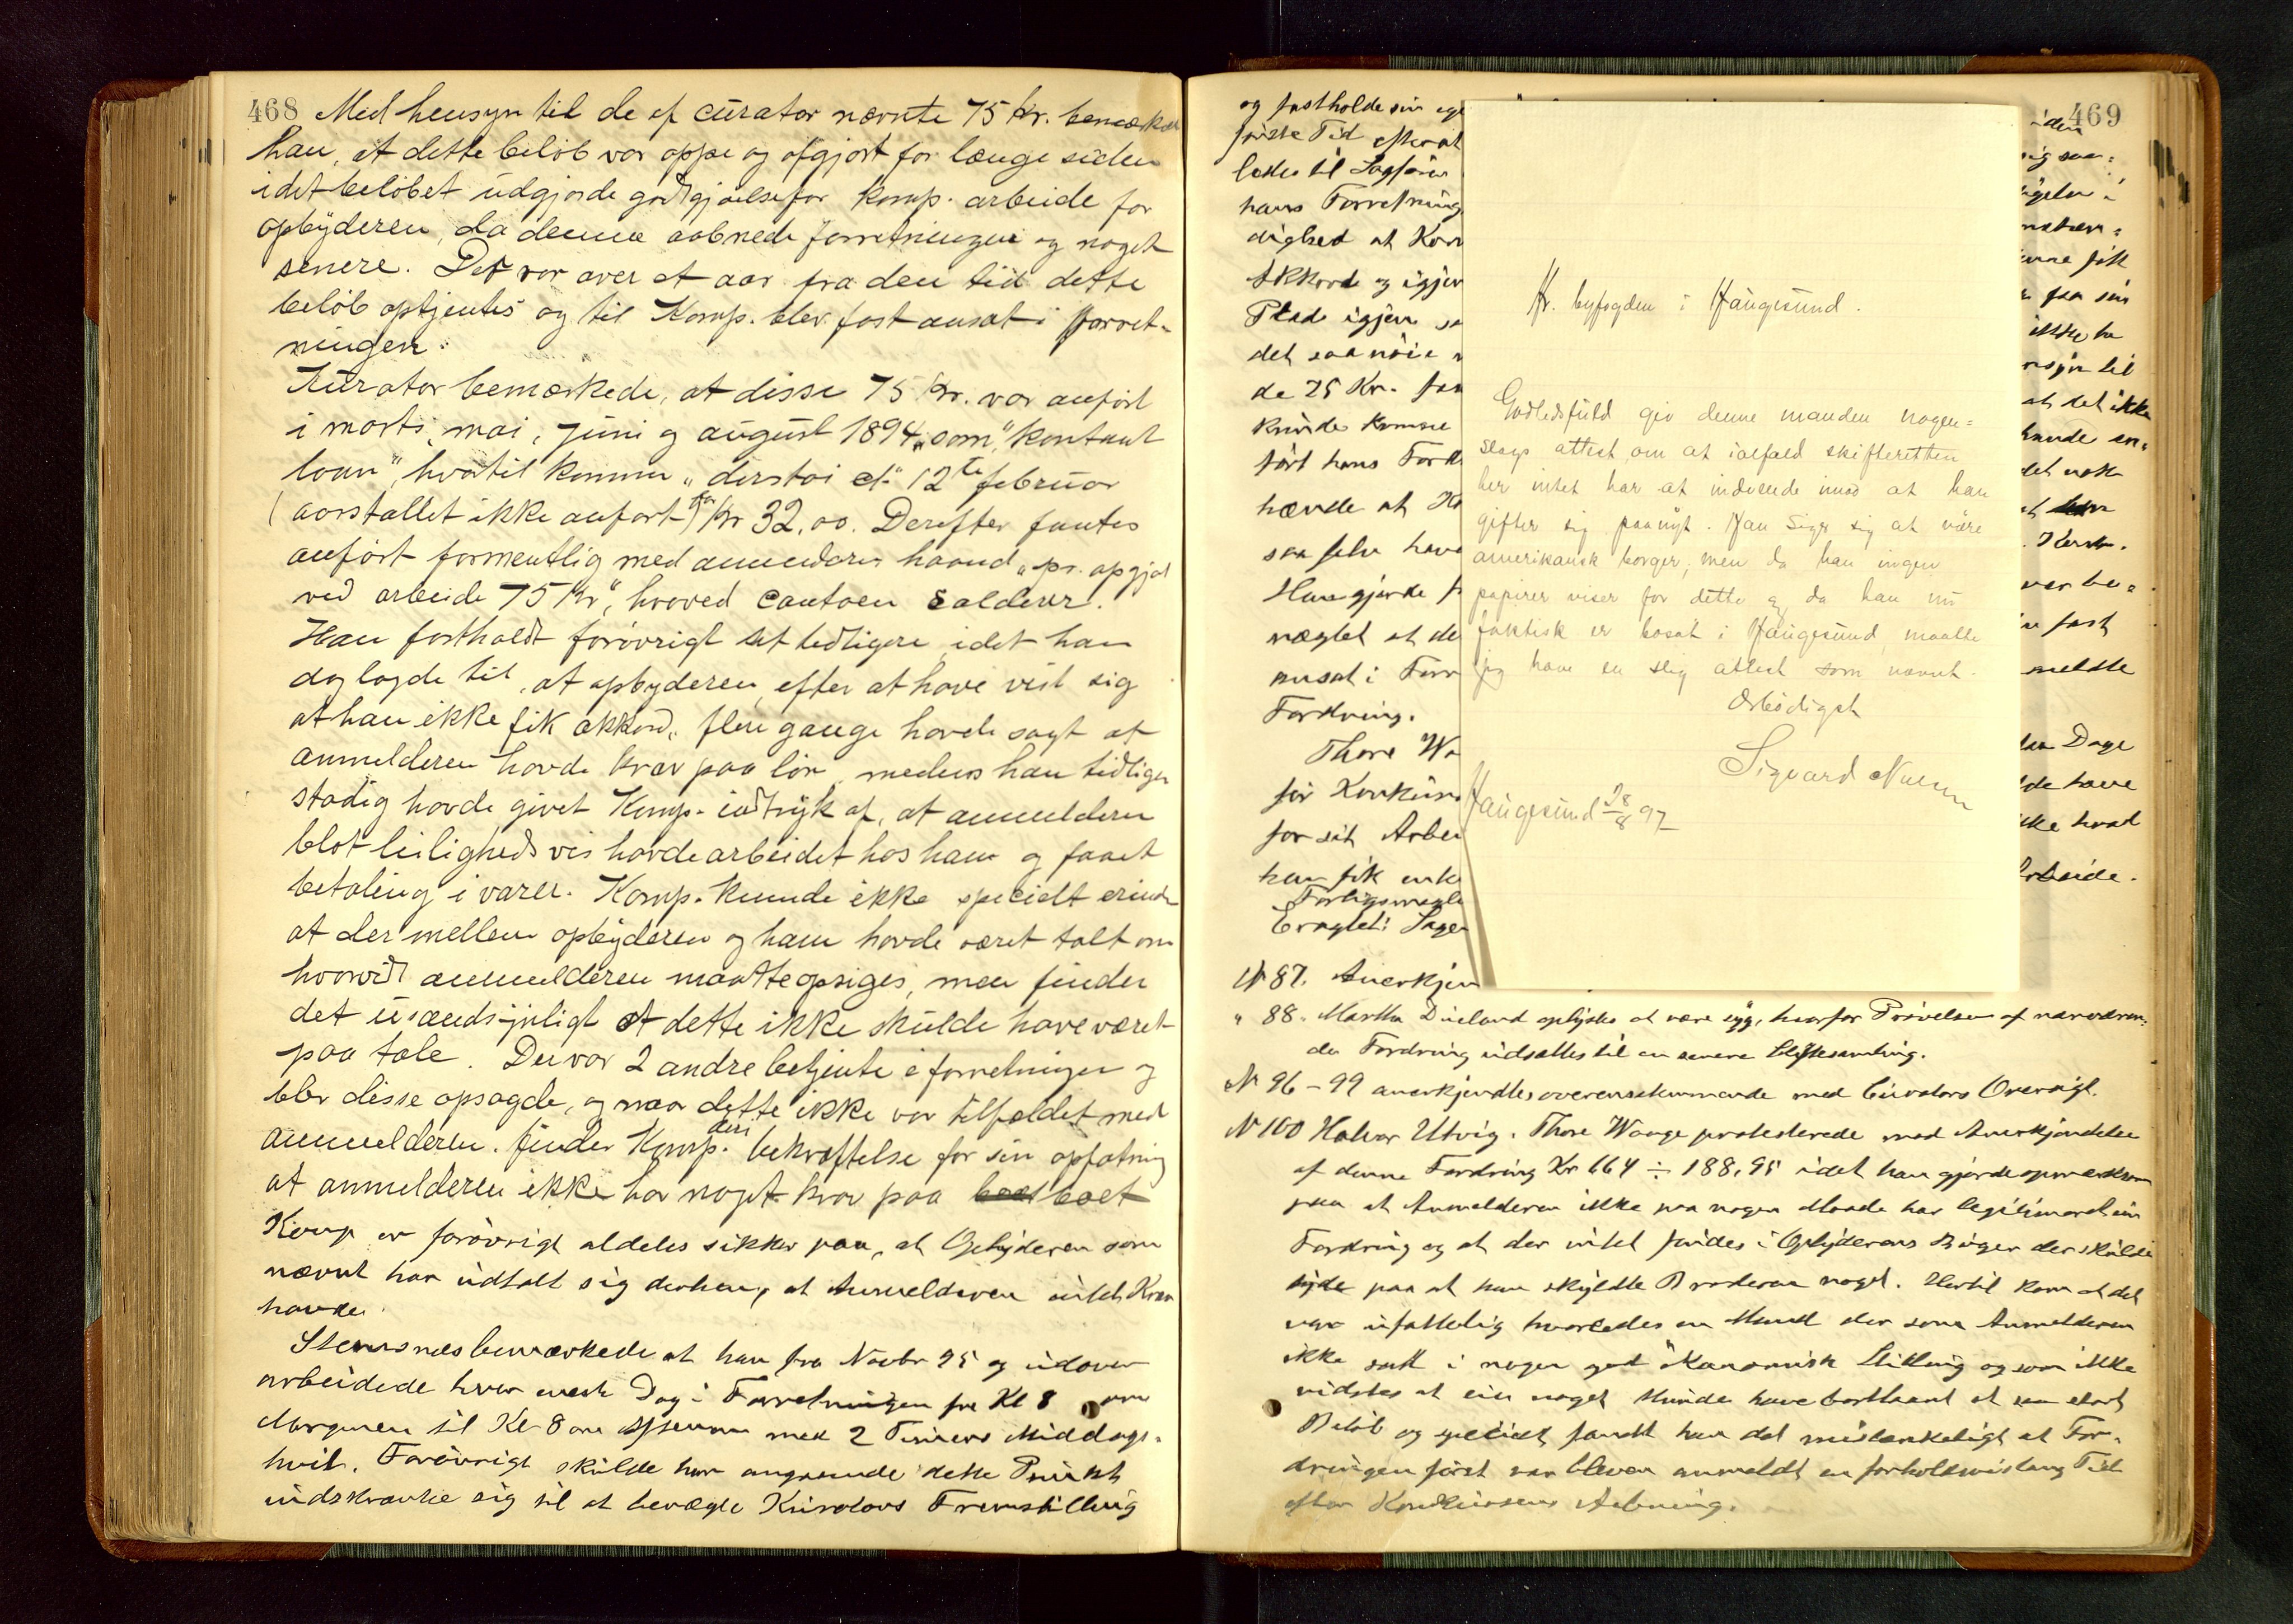 468 Med hensyn til de af curator nævnte 75 kr. bemærked
han, at dette beløb var oppe og afgjort for længe siden
idet beløbet udgjorde godtgjørelse for komp. arbeide for
opbyderen, da denne aabnede forretningen og noget
senere. Det var over et aar fra den tid dette
beløb optjentes og til Komp. blev fast ansat i forret-
ningen.
Kurator bemærkede, at disse 75 kr. var anført
i marts, mai, juni og august 1894 som "kontant
laan", hvortil kommer "derstoi et" 12te februar
(aarstallet ikke anført) for Kr 32,00. Derefter fantes
anført formentlig med anmelderens haand "pr. opgjør
ved arbeide 75 Kr", hvorved contoen salderer.
Han fastholdt forøvrigt sit tidligere idet han
dog lagde til, at opbyderen, efter at have vist sig
at han ikke fik akkord, flere gange havde sagt at
anmelderen havde krav paa løn, medens han tidligere
stadig havde givet Komp. indtryk af, at anmelderen
blot leilighedsvis havde arbeidet hos ham og faaet
betaling i varer. Komp. kunde ikke specielt erindre
at der mellem opbyderen og ham havde været talt om
hvorvidt anmelderen maatte opsiges, men finder
det usandsynligt at dette ikke skulde have været
paa tale. Der var 2 andre betjente i forretningen og
blev disse opsagde, og naar dette ikke var tilfældet med
anmelderen, finder Komp. deri bekræftelse for sin opfatning
at anmelderen ikke har noget krav paa boet
Komp er forøvrigt aldeles sikker paa, at Opbyderen som
nævnt har udtalt sig derhen, at Anmelderen intet Krav
havde.
Stensnæs bemærkede at han fra Novbr 95 og udover
arbeidede hver eneste Dag i Forretningen fra Kl 8 om
Morgenen til Kl 8 om Aftenen med 2 Timers Middags-
hvil. Forøvrigt skulde han angaaende dette Punkt
indskrænke sig til at benægte Kurators Fremstilling
469
og fastholde sin
første Tid efter at
lodes til Sagfører
hans Forretning
dighed at
Akkord og igjen
Plads igjen
det saa nøie
de 25 Kr.
kunde komme
ført hans
hævde at
saa selv have
Han gjorde
nægtet at
ansat i
Fordring.
Thore
for
for sit
han fik
Forligsmægl
Eragtet: Sagen
Hr. byfogden i Haugesund.
Godhedsfuld giv denne manden nogen-
slags attest, om at ialfald skifteretten
her intet har at indvende imod at han
gifter sig paanyt. Han siger sig at være
amerikansk borger, men da han ingen
papirer viser for dette og da han nu
faktisk er bosat i Haugesund, maatte
jeg have en slig attest som nævnt.
Ærbødigst
Sigvard
Haugesund 28/8 97
fik
paa sin
ikke ha
til
at det ikke
havde
det nok
fast
meldte
Dage
have
ikke hvad
Arbeide.
N 87.
" 88. Martha oplystes at være syg, hvorfor Prøvelsen af nærværen-
de Fordring udsattes til en senere Skiftesamling.
N 96-99 anerkjendtes overensstemmende med Curators Oversigt.
N 100 Halvor Utvig. Thore Waage protesterede mod Anerkjendelse
af denne Fordring Kr 664 ÷ 188,95 idet han gjorde opmærksom
paa at Anmelderen ikke paa nogen Maade har legitimeret sin
Fordring og at der intet findes i Opbyderens Bøger der skulde
tyde paa at han skyldte Broderen noget. Hertil kom at det
var ufatteligt hvorledes en Mand der som Anmelderen
ikke sad i nogen god økonomisk Stilling og som ikke
vidstes at eie noget kunde have bortlaant et saa stort
Beløb og specielt fandt han det mistænkeligt at For-
dringen først var bleven anmeldt en forholdsvis lang Tid
efter Konkursens Aabning.